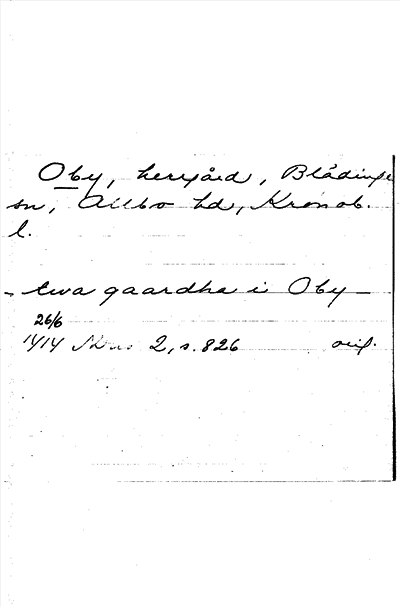 Oby, herrgård, Blädinge
sn, Allbo hd, Kronob.
l.
- twa gaardha i Oby -
26/6
1414 2, s. 826 orig.